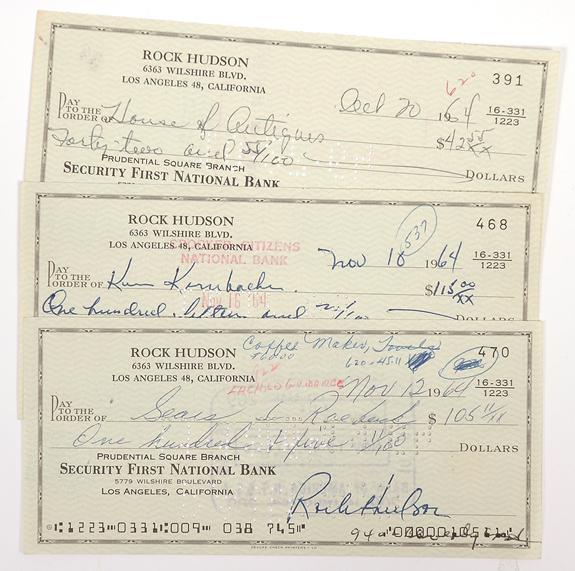 ROCK HUDSON
6363 WILSHIRE BLVD.
LOS ANGELES 48, CALIFORNIA
620
391
Oct 20 1964
16-331
1223
PAY TO THE ORDER OF House of Antiques
$42 55/xx
Forty two and 55/100
DOLLARS
PRUDENTIAL SQUARE BRANCH
SECURITY FIRST NATIONAL BANK
5779 WILSHIRE BOULEVARD
ROCK HUDSON
6363 WILSHIRE BLVD.
LOS ANGELES 48, CALIFORNIA
CROCKER-CITIZENS
NATIONAL BANK
NOV 16 '64
537
468
Nov 10 1964
16-331
1223
PAY TO THE ORDER OF
$115 00/xx
One hundred fifteen and
DOLLARS
ROCK HUDSON
6363 WILSHIRE BLVD.
LOS ANGELES 48, CALIFORNIA
Coffee Maker,
470
Nov 12 1964
16-331
1223
PAY TO THE ORDER OF Sears & Roebuck
$105 11/xx
One hundred & five 11/100
DOLLARS
PRUDENTIAL SQUARE BRANCH
SECURITY FIRST NATIONAL BANK
5779 WILSHIRE BOULEVARD
LOS ANGELES, CALIFORNIA
Rock Hudson
1223 0331 009 038 745